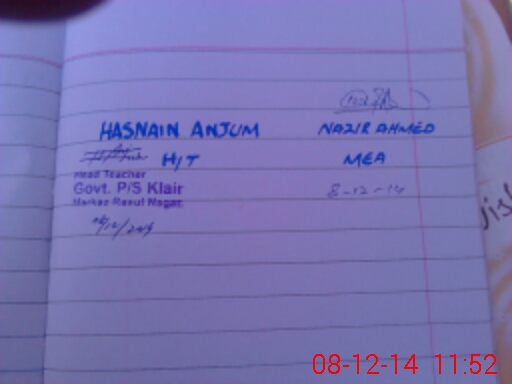 HASNAIN ANJUM
H/T
Head Teacher
Govt. P/S Klair
Markaz Rasul Nagar
NAZIR AHMED
MEA
8-12-14
08-12-14 11:52